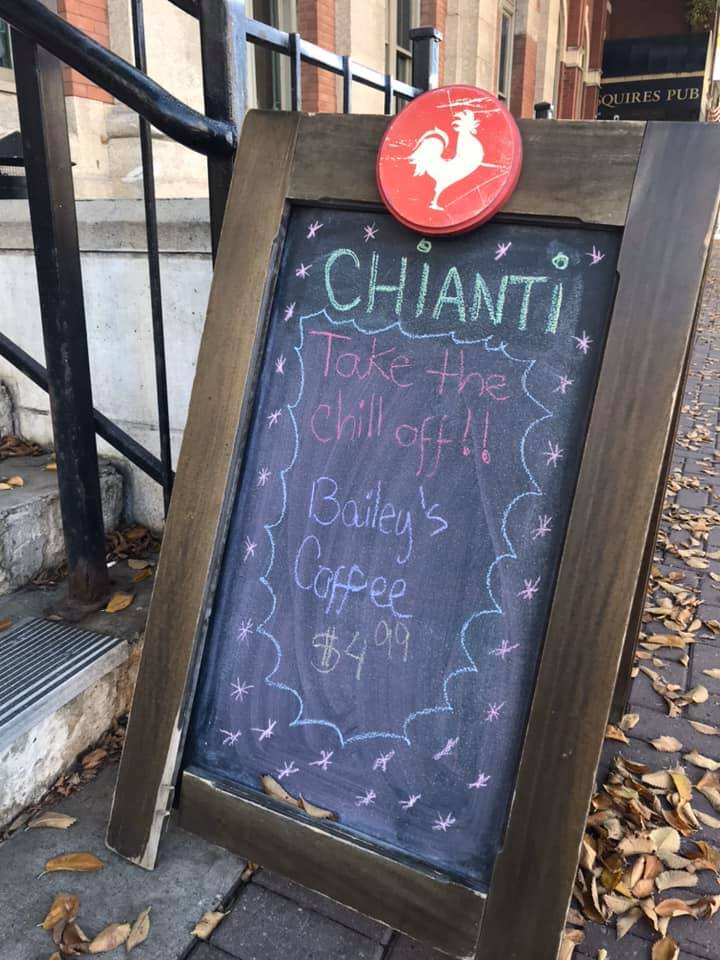 SQUIRES PUB
CHIANTI
Take the
chill off!!
Bailey's
Coffee
$4.99